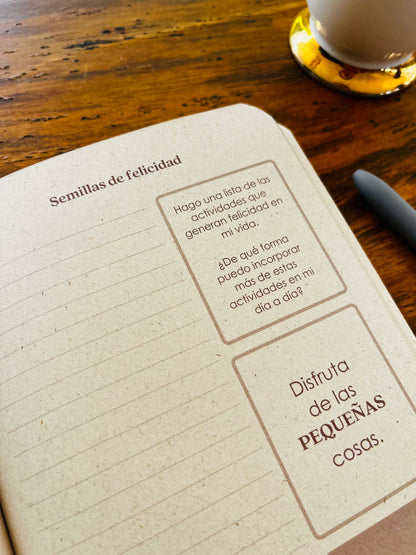 Semillas de felicidad
Hago una lista de las
actividades que
generan felicidad en
mi vida.
¿De qué forma
puedo incorporar
más de estas
actividades en mi
día a día?
Disfruta
de las
PEQUEÑAS
cosas.